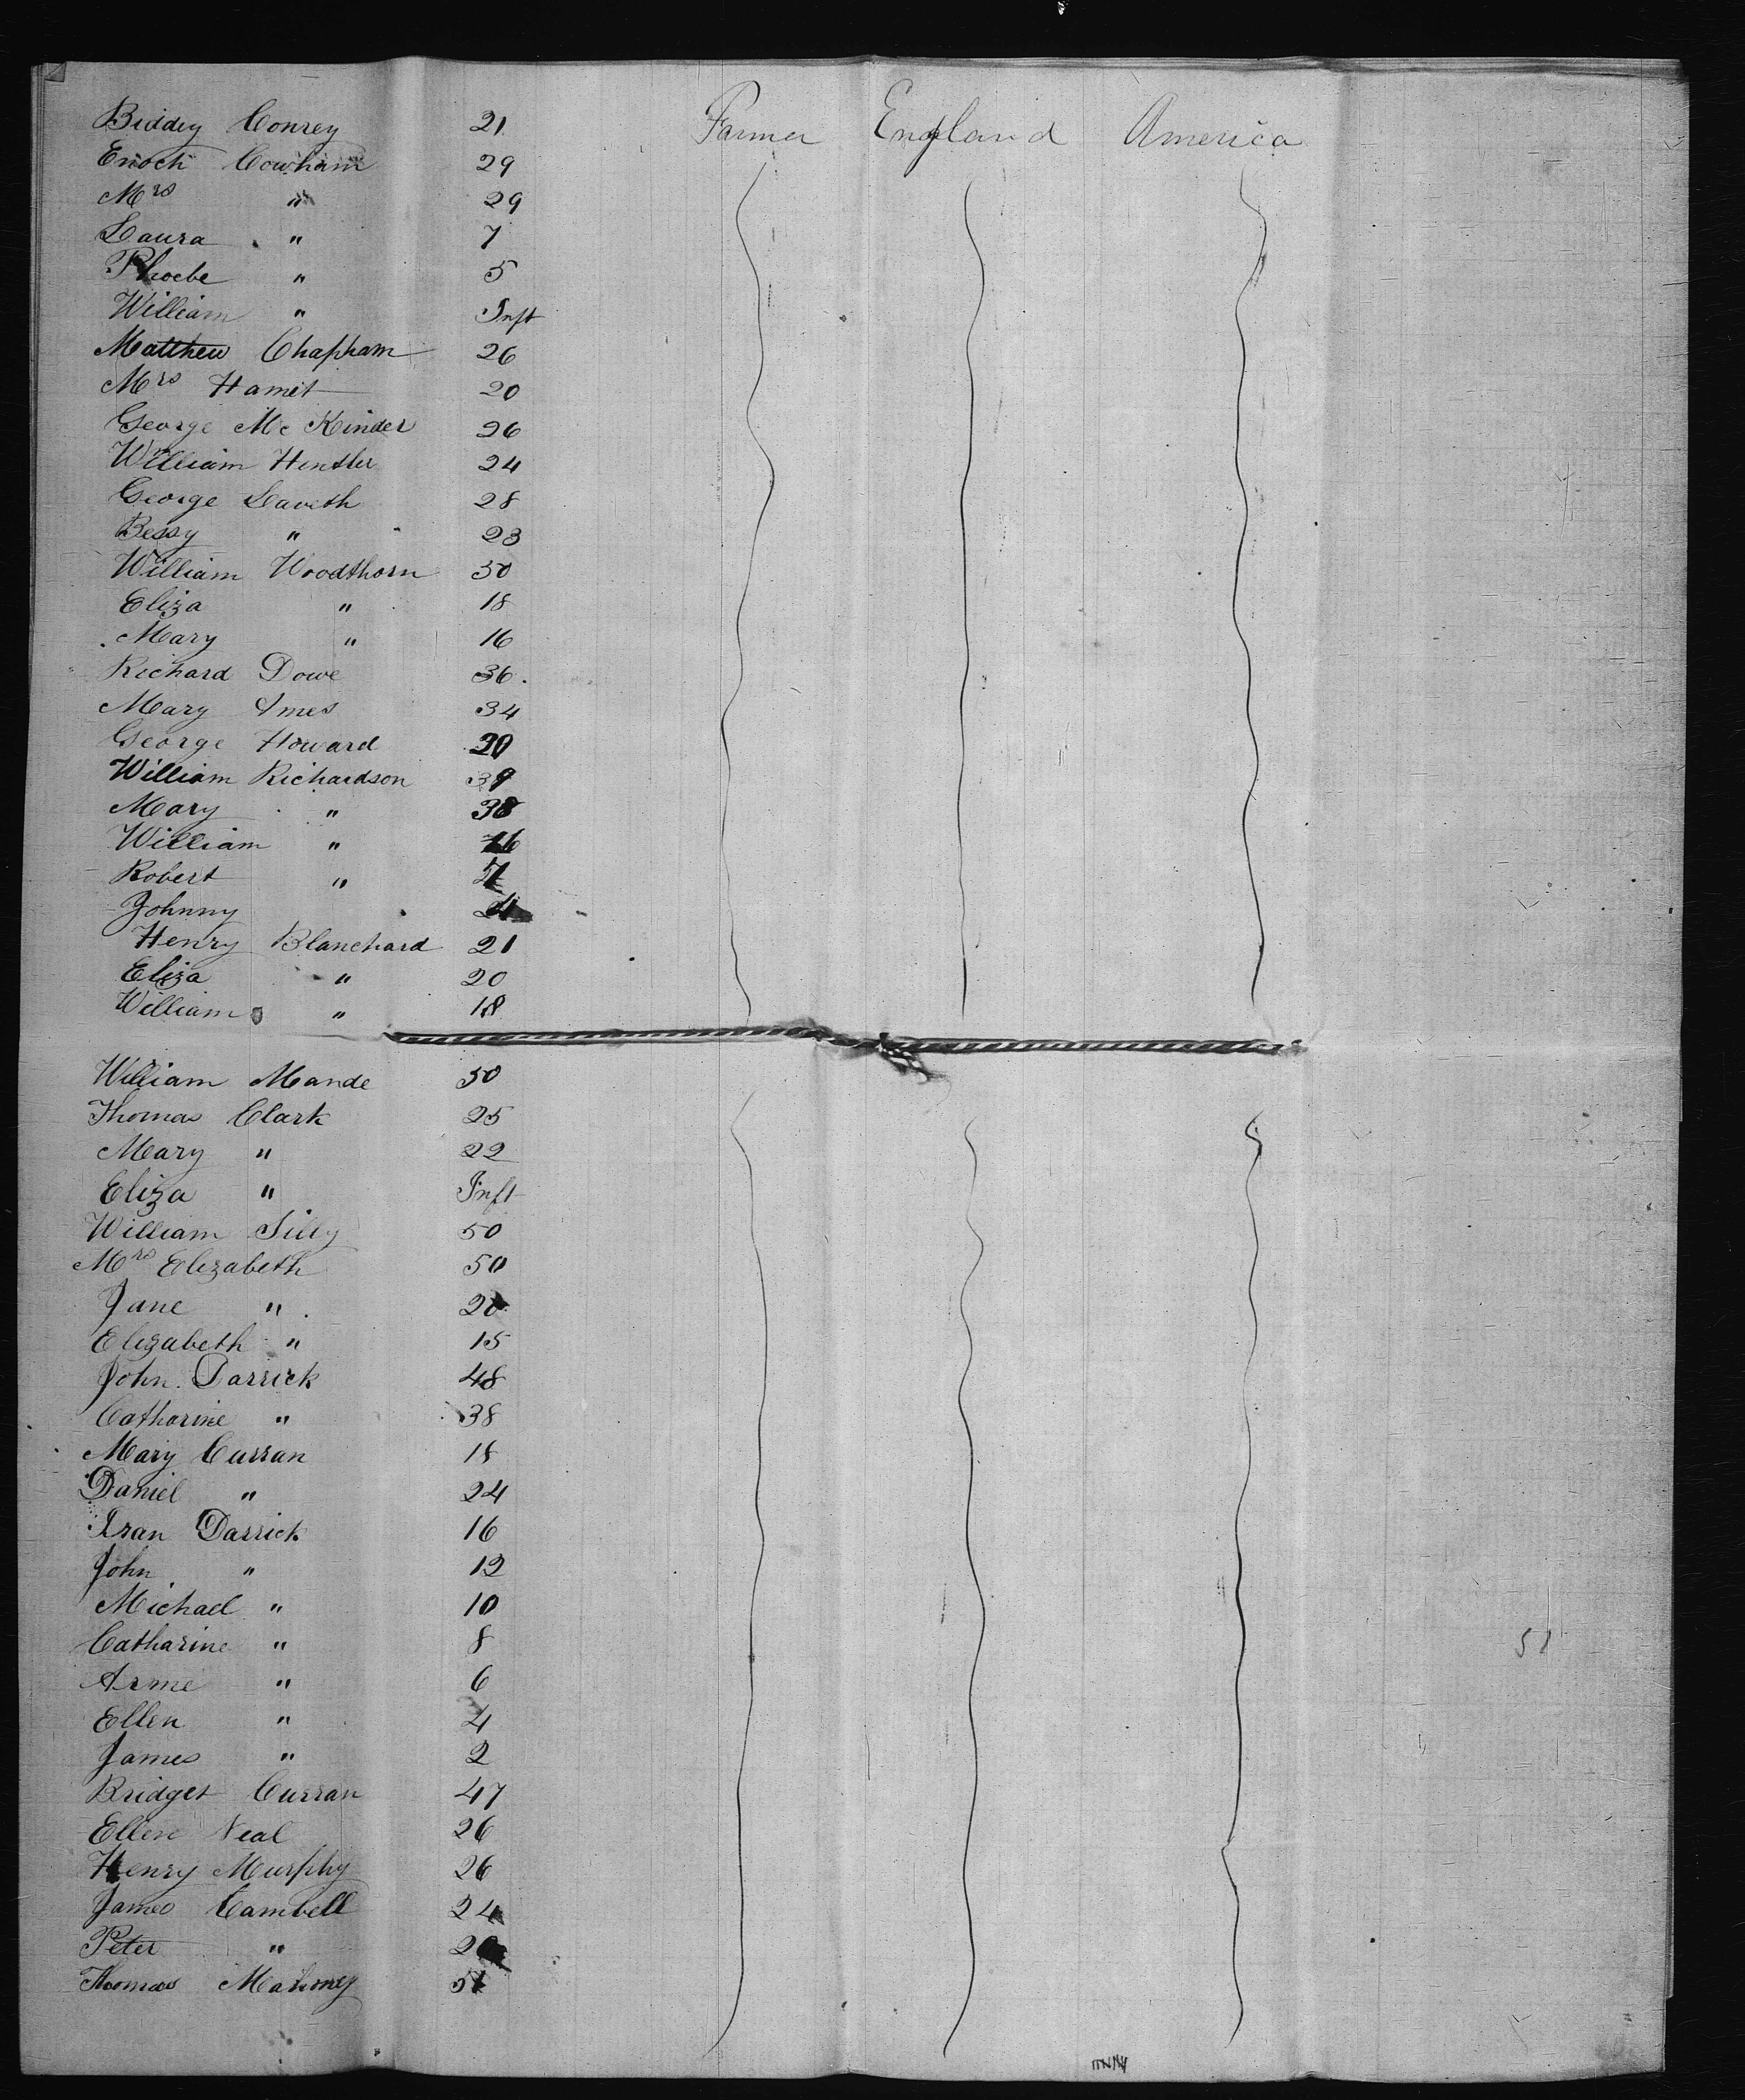 Biddy Conrey 21 Farmer England America
Enoch Cowham 29
Mrs " 29
Laura " 7
Phoebe " 5
William " Inft
Matthew Chapham 26
Mrs Hamet 20
George Mc Kinder 26
William Hentler 24
George Laveth 28
Bessy " 23
William Woodthorn 30
Eliza " 18
Mary " 16
Richard Dowe 36
Mary Ames 34
George Howard 20
William Richardson 39
Mary " 38
William " 16
Robert " 7
Johnny
Henry Blanchard 21
Eliza " 20
William " 18
William Mande 50
Thomas Clark 25
Mary " 22
Eliza " Inft
William Silly 50
Mrs Elizabeth 50
Jane " 20
Elizabeth " 15
John Darrick 48
Catharine " 38
Mary Curran 18
Daniel " 24
Darrick 16
John " 12
Michael " 10
Catharine " 8
" 6
Ellen " 4
James " 2
Bridget Curran 47
Ellen Neal 26
Henry Murphy 26
James Cambell 24
Peter "
Thomas Mahoney
51